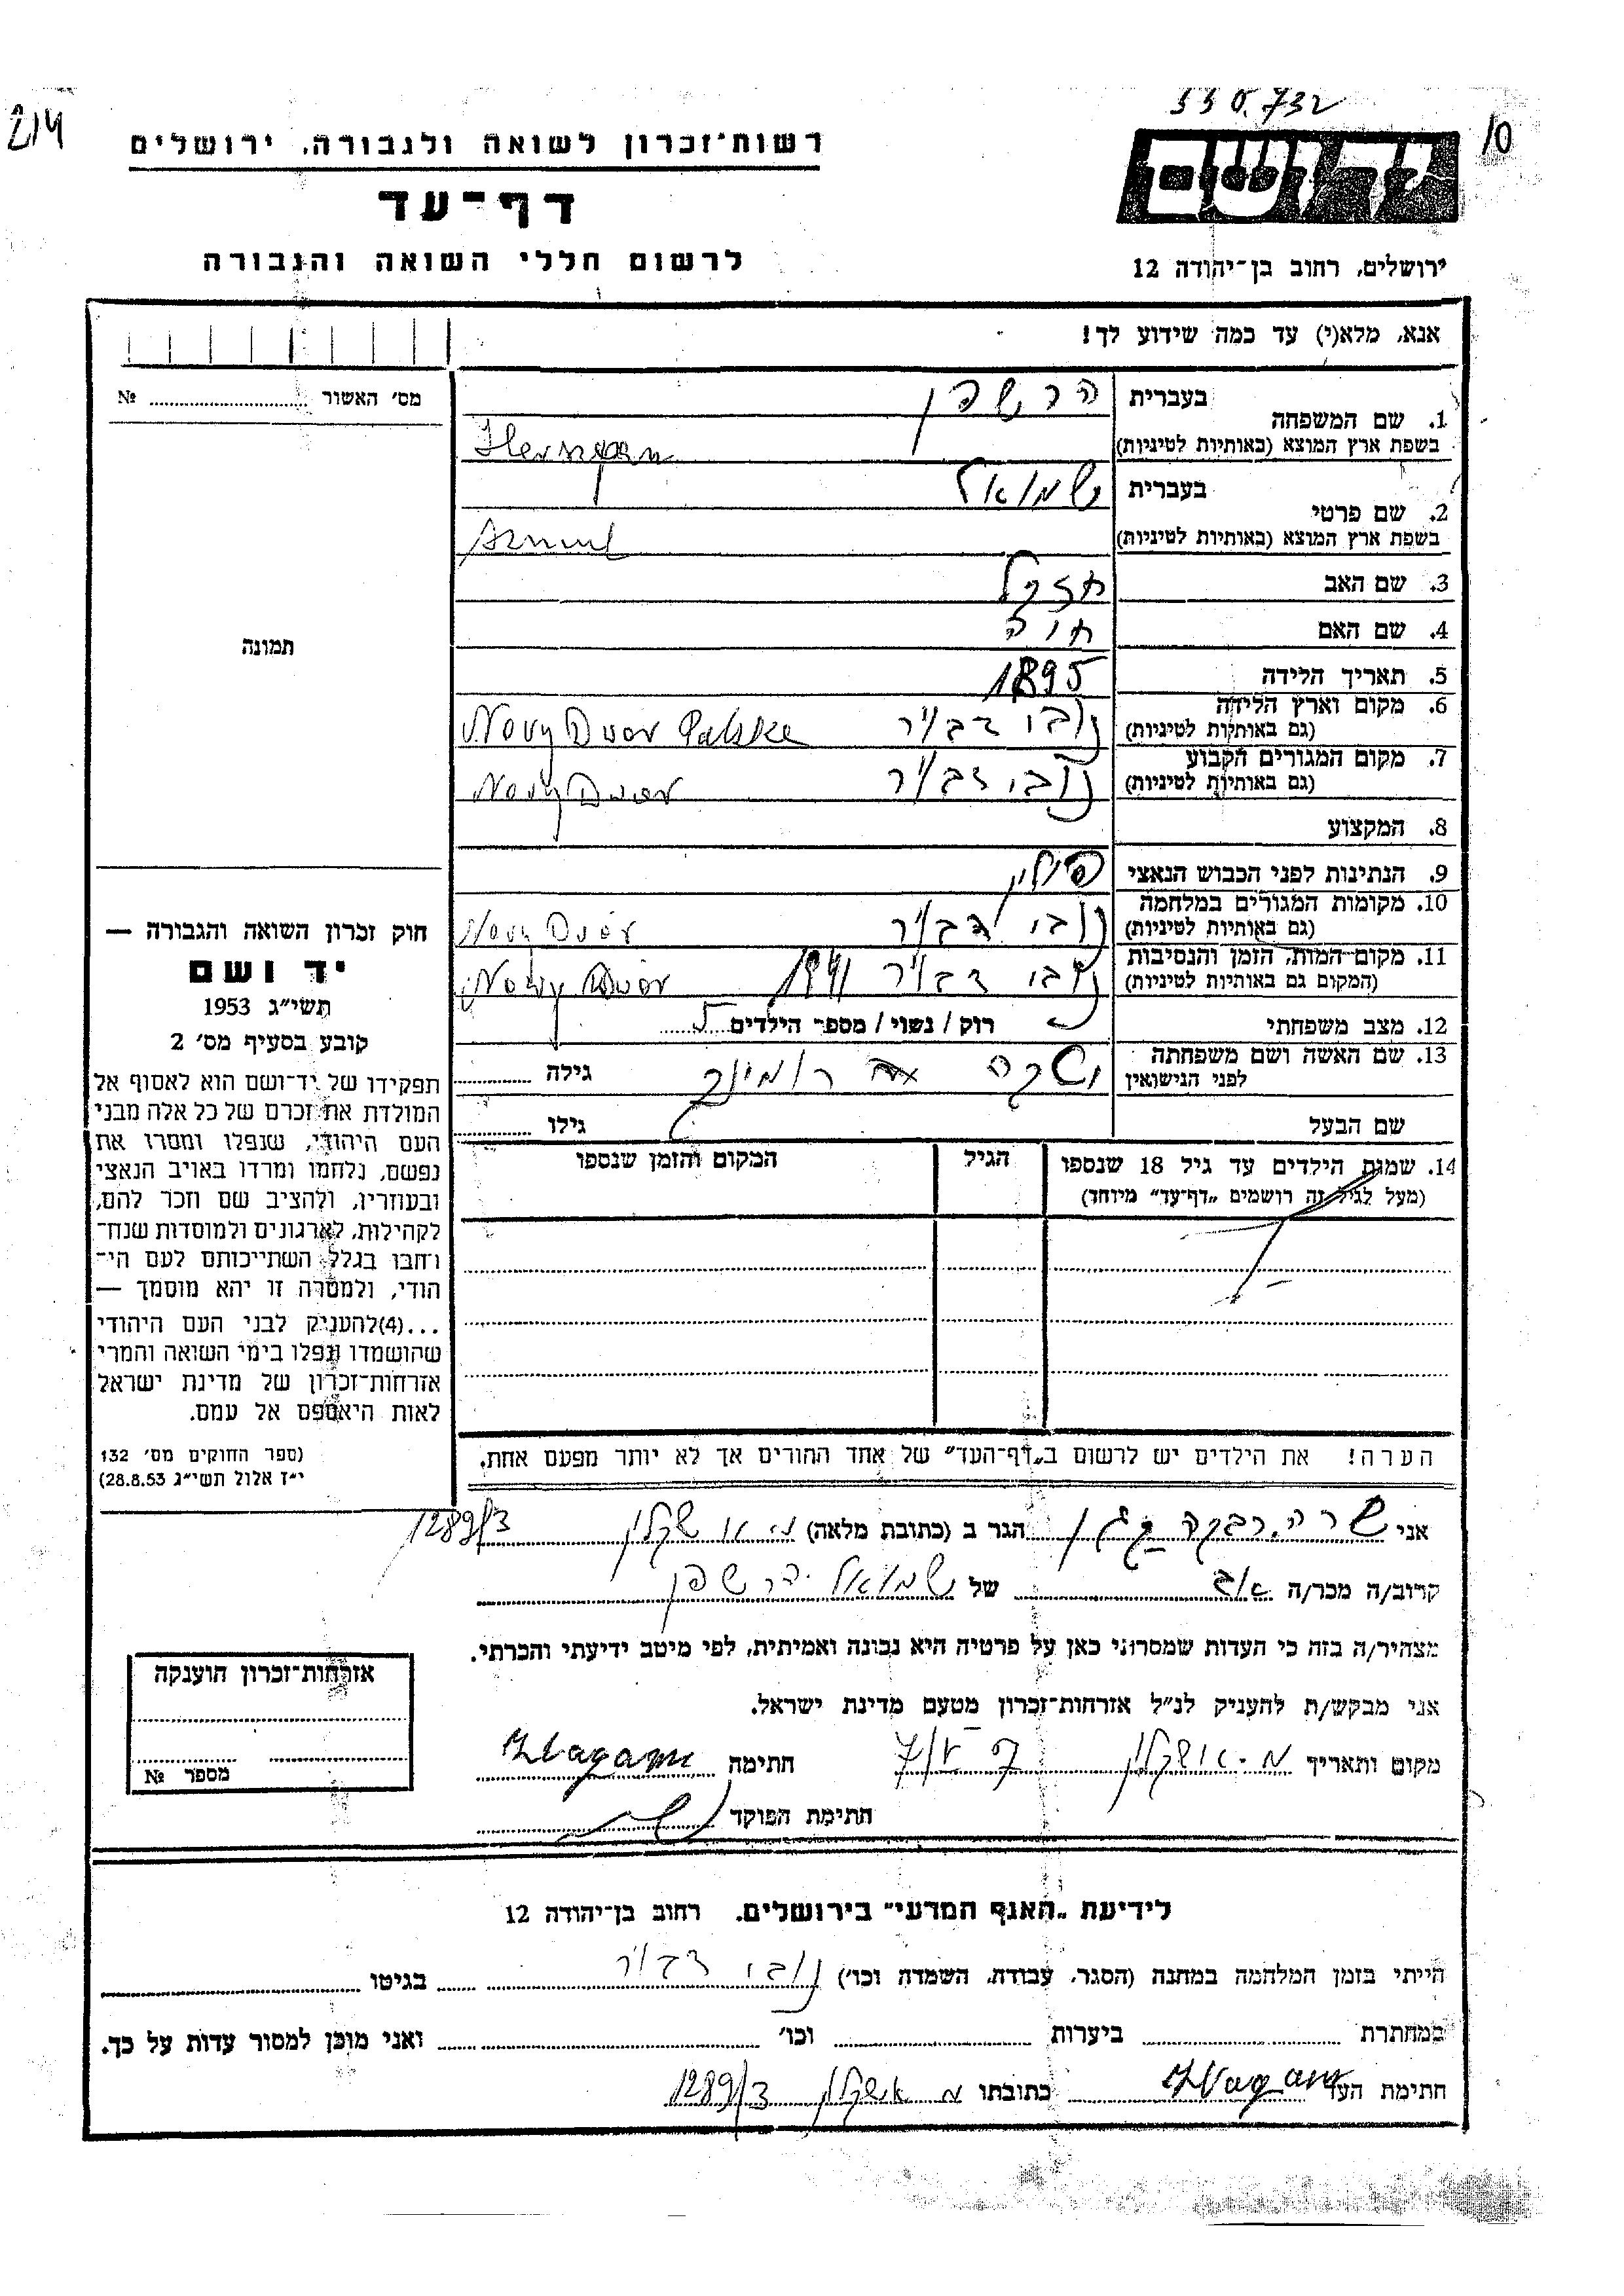 214
550.732
10
רשות־זכרון לשואה ולגבורה, ירושלים
דף־עד
לרשום חללי השואה והגבורה
ירושלים, רחוב בן־יהודה 12
אנא, מלא(י) עד כמה שידוע לך!
מס׳ האשור № ........
1. שם המשפחה בעברית הרשפן
בשפת ארץ המוצא (באותיות לטיניות)
2. שם פרטי בעברית שמואל
בשפת ארץ המוצא (באותיות לטיניות)
3. שם האב חזקל
4. שם האם חוה
5. תאריך הלידה 1895
6. מקום וארץ הלידה (גם באותיות לטיניות) נובי דבור Novy Dvor Polske
7. מקום המגורים הקבוע (גם באותיות לטיניות) נובי דבור Novy Dvor
8. המקצוע
9. הנתינות לפני הכבוש הנאצי פולין
10. מקומות המגורים במלחמה (גם באותיות לטיניות) נובי דבור Novy Dvor
11. מקום המות, הזמן והנסיבות (המקום גם באותיות לטיניות) נובי דבור 1941 Novy Dvor
12. מצב משפחתי רוק / נשוי / מספר הילדים 5
13. שם האשה ושם משפחתה לפני הנישואין גילה ........
שם הבעל גילו ........
14. שמות הילדים עד גיל 18 שנספו (מעל לגיל זה רושמים „דף־עד” מיוחד)
הגיל
המקום והזמן שנספו
תמונה
חוק זכרון השואה והגבורה —
יד ושם
תשי״ג 1953
קובע בסעיף מס׳ 2
תפקידו של יד־ושם הוא לאסוף אל
המולדת את זכרם של כל אלה מבני
העם היהודי, שנפלו ומסרו את
נפשם, נלחמו ומרדו באויב הנאצי
ובעוזריו, ולהציב שם וזכר להם,
לקהילות, לארגונים ולמוסדות שנח־
רבו בגלל השתייכותם לעם הי־
הודי, ולמטרה זו יהא מוסמך —
...(4)להעניק לבני העם היהודי
שהושמדו ונפלו בימי השואה והמרי
אזרחות־זכרון של מדינת ישראל
לאות היאספם אל עמם.
(ספר החוקים מס׳ 132
י״ז אלול תשי״ג 28.8.53)
הערה! את הילדים יש לרשום ב„דף־העד” של אחד ההורים אך לא יותר מפעם אחת.
אני שרה רבקה הגר ב (כתובת מלאה) מ. אשקלון 1289/3
קרוב/ה מכר/ה אב של שמואל הרשפן
מצהיר/ה בזה כי העדות שמסרתי כאן על פרטיה היא נכונה ואמיתית, לפי מיטב ידיעתי והכרתי.
אני מבקש/ת להעניק לנ״ל אזרחות־זכרון מטעם מדינת ישראל.
מקום ותאריך מ. אשקלון חתימה
חתימת הפוקד
אזרחות־זכרון הוענקה
מספר №
לידיעת „האגף המדעי” בירושלים, רחוב בן־יהודה 12
הייתי בזמן המלחמה במחנה (הסגר, עבודת, השמדה וכו׳) נובי דבור בגיטו ........
במחתרת ........ ביערות ........ וכו׳ ........ ואני מוכן למסור עדות על כך.
חתימת העד כתובתו מ אשקלון 1289/3